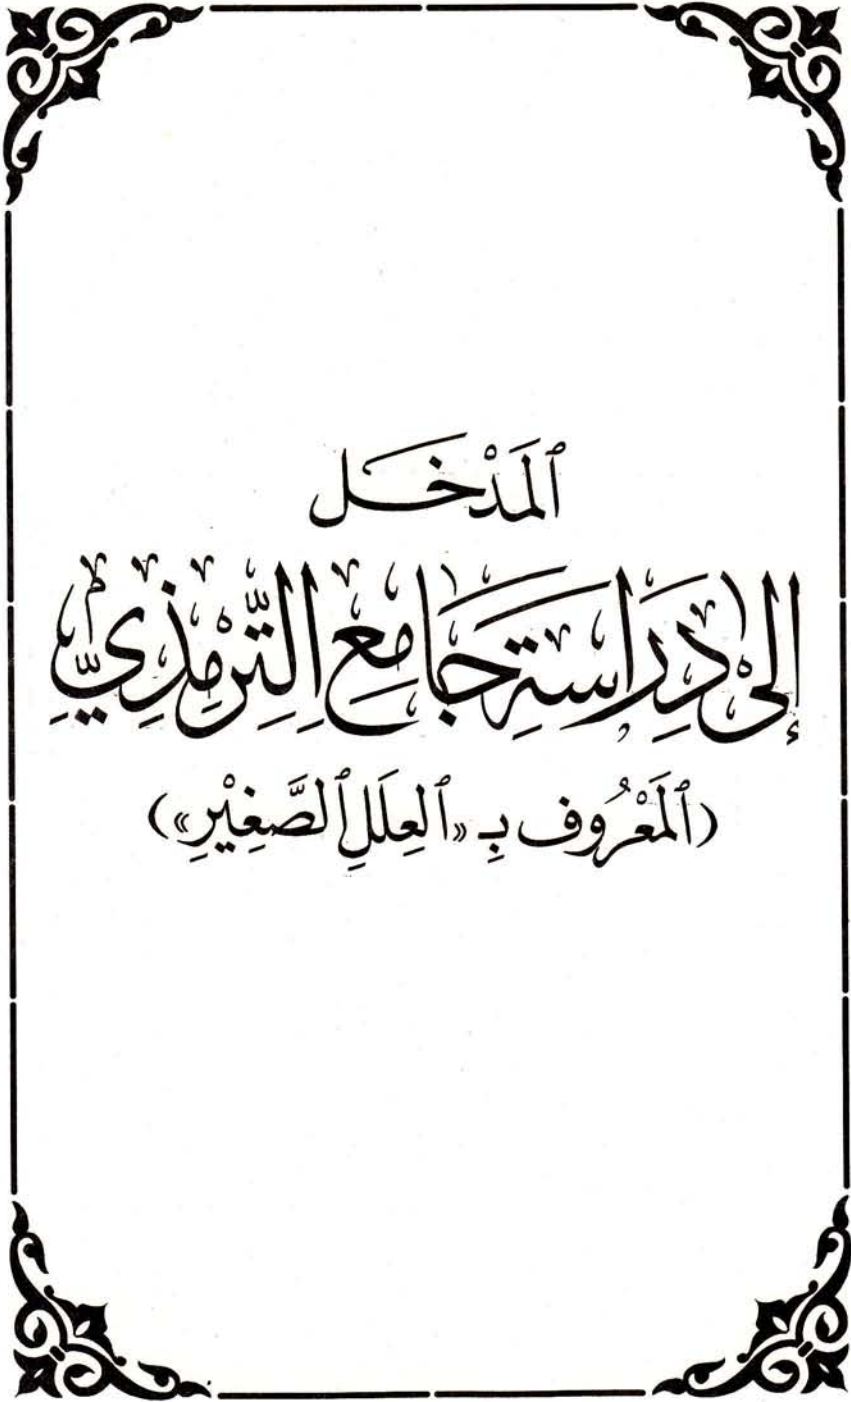 ٱلمَدْخَل
إِلىٰ دِرَاسَةِ جَامِعِ التِّرْمِذِيِّ
(ٱلمَعْرُوف بِـ «ٱلعِلَلِ ٱلصَّغِيْرِ»)